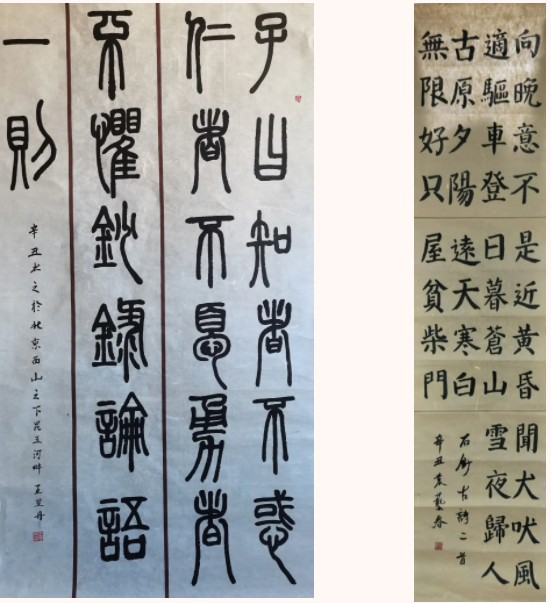 子曰知者不惑
仁者不憂勇者
不懼鈔錄論語
一則
辛丑书之於北京西山之下昆玉河畔
向晚意不
適驅車登
古原夕陽
無限好只
是近黃昏
日暮蒼山
遠天寒白
屋貧柴門
聞犬吠風
雪夜歸人
右錄古詩二首
辛丑袁藝春